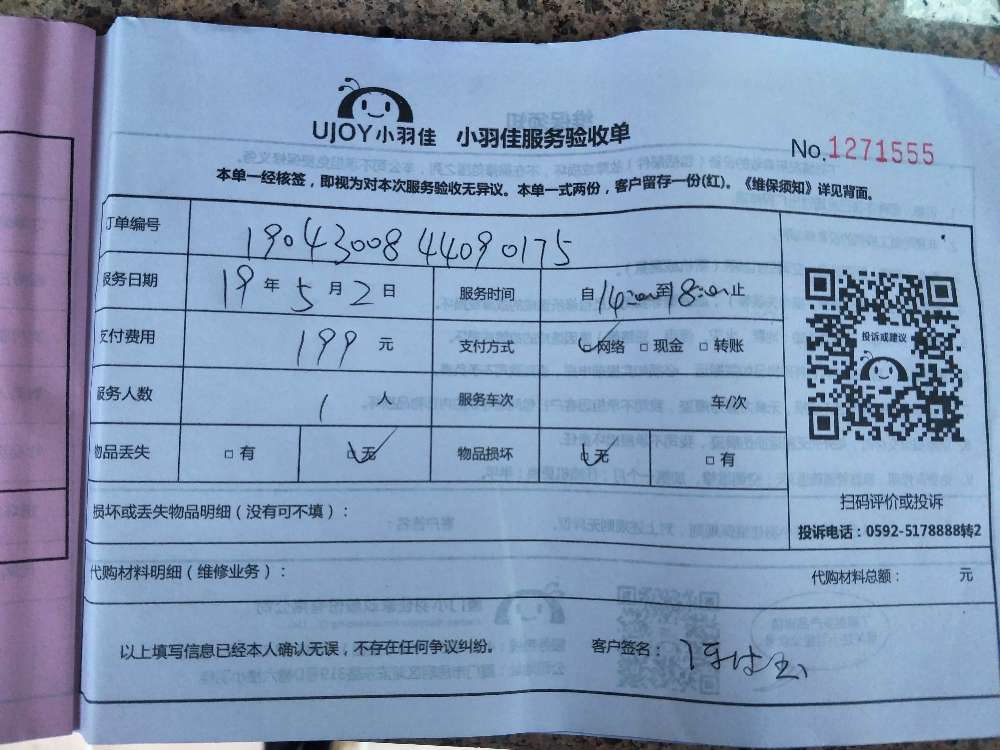 UJOY小羽佳 小羽佳服务验收单
No.1271555
本单一经核签，即视为对本次服务验收无异议。本单一式两份，客户留存一份(红)。《维保须知》详见背面。
订单编号 1904300844090175
服务日期 19年5月2日 服务时间 自14:00至18:00止
支付费用 199元 支付方式 ☑网络 □现金 □转账
服务人数 1人 服务车次 车/次
物品丢失 □有 ☑无 物品损坏 ☑无 □有
投诉或建议
扫码评价或投诉
投诉电话：0592-5178888转2
损坏或丢失物品明细（没有可不填）：
代购材料明细（维修业务）： 代购材料总额： 元
以上填写信息已经本人确认无误，不存在任何争议纠纷。 客户签名：